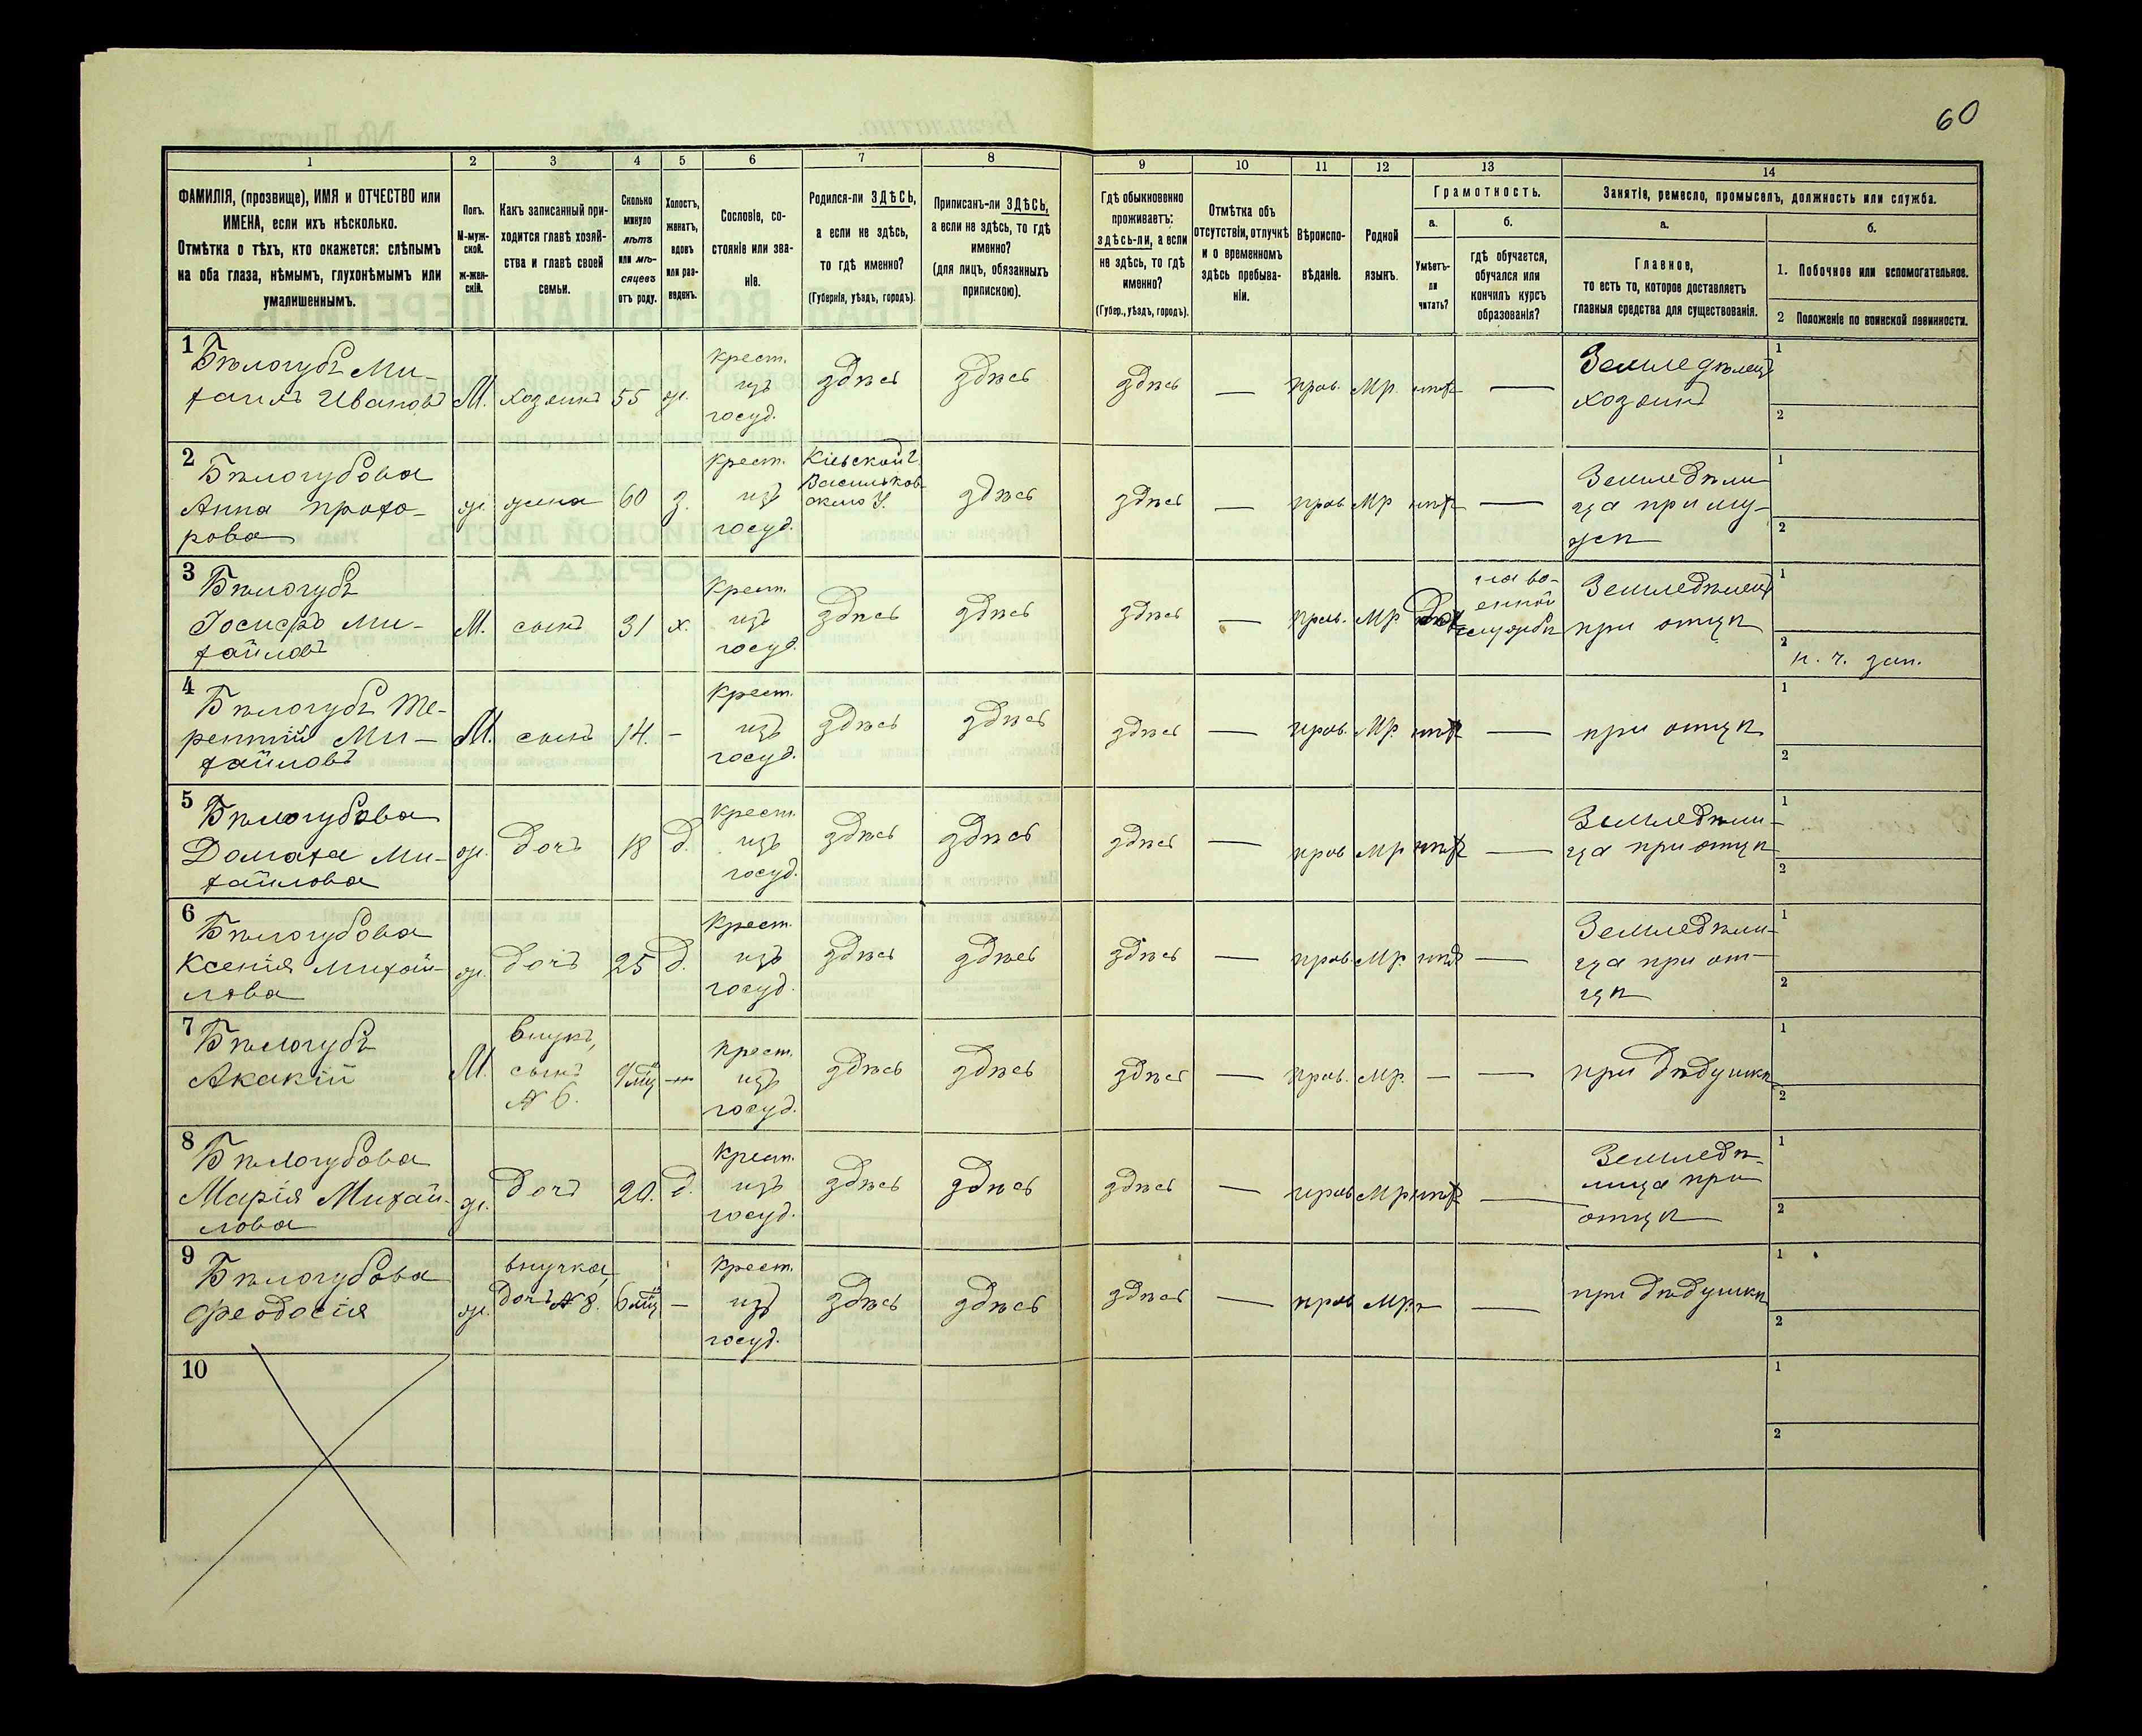 60
1 2 3 4 5 6 7 8 9 10 11 12 13 14
ФАМИЛІЯ, (прозвище), ИМЯ и ОТЧЕСТВО или
ИМЕНА, если ихъ нѣсколько.
Отмѣтка о тѣхъ, кто окажется: слѣпымъ
на оба глаза, нѣмымъ, глухонѣмымъ или
умалишеннымъ.
Полъ.
М-муж-
ской.
ж-жен-
скій.
Какъ записанный при-
ходится главѣ хозяй-
ства и главѣ своей
семьи.
Сколько
минуло
лѣтъ
или мѣ-
сяцевъ
отъ роду.
Холостъ,
женатъ,
вдовъ
или раз-
веденъ.
Сословіе, со-
стояніе или зва-
ніе.
Родился-ли ЗДѢСЬ,
а если не здѣсь,
то гдѣ именно?
(Губернія, уѣздъ, городъ).
Приписанъ-ли ЗДѢСЬ,
а если не здѣсь, то гдѣ
именно?
(для лицъ, обязанныхъ
припискою).
Гдѣ обыкновенно
проживаетъ:
здѣсь-ли, а если
не здѣсь, то гдѣ
именно?
(Губер., уѣздъ, городъ).
Отмѣтка объ
отсутствіи, отлучкѣ
и о временномъ
здѣсь пребыва-
ніи.
Вѣроиспо-
вѣданіе.
Родной
языкъ.
Грамотность.
а.
Умѣетъ-
ли
читать?
б.
гдѣ обучается,
обучался или
кончилъ курсъ
образованія?
Занятія, ремесло, промыселъ, должность или служба.
а.
Главное,
то есть то, которое доставляетъ
главныя средства для существованія.
б.
1. Побочное или вспомогательное.
2 Положеніе по воинской повинности.
1 Бѣлогубъ Ми-
хаилъ Ивановъ М. хозяинъ 55 ж. крест. изъ госуд. здѣсь здѣсь здѣсь — прав. Мр. нѣтъ — Земледѣлецъ
хозяинъ
1
2
2 Бѣлогубова
Анна Прохо-
рова ж. жена 60 з. крест. изъ госуд. Кіевской г.
Васильков-
скаго У. здѣсь здѣсь — прав. Мр. нѣтъ — Земледѣли-
ца при му-
жѣ
1
2
3 Бѣлогубъ
Іосифъ Ми-
хайловъ М. сынъ 31 х. крест. изъ госуд. здѣсь здѣсь здѣсь — прав. Мр. да на во-
енной
службѣ Земледѣлецъ
при отцѣ
1
2 н. ч. зап.
4 Бѣлогубъ Те-
рентій Ми-
хайловъ М. сынъ 14. — крест. изъ госуд. здѣсь здѣсь здѣсь — прав. Мр. нѣтъ — при отцѣ
1
2
5 Бѣлогубова
Домаха Ми-
хайлова ж. дочь 18 д. крест. изъ госуд. здѣсь здѣсь здѣсь — прав. Мр. нѣтъ — Земледѣли-
ца при отцѣ
1
2
6 Бѣлогубова
Ксенія Михай-
лова ж. дочь 25 д. крест. изъ госуд. здѣсь здѣсь здѣсь — прав. Мр. нѣтъ — Земледѣли-
ца при от-
цѣ
1
2
7 Бѣлогубъ
Акакій М. внукъ,
сынъ
№ 6. мц — крест. изъ госуд. здѣсь здѣсь здѣсь — прав. Мр. — — при дѣдушкѣ
1
2
8 Бѣлогубова
Марія Михай-
лова ж. дочь 20. д. крест. изъ госуд. здѣсь здѣсь здѣсь — прав. Мр. нѣтъ — Земледѣ-
лица при
отцѣ
1
2
9 Бѣлогубова
Феодосія ж. внучка,
дочь № 8. 6 мц — крест. изъ госуд. здѣсь здѣсь здѣсь — прав. Мр. — — при дѣдушкѣ
1
2
10
1
2